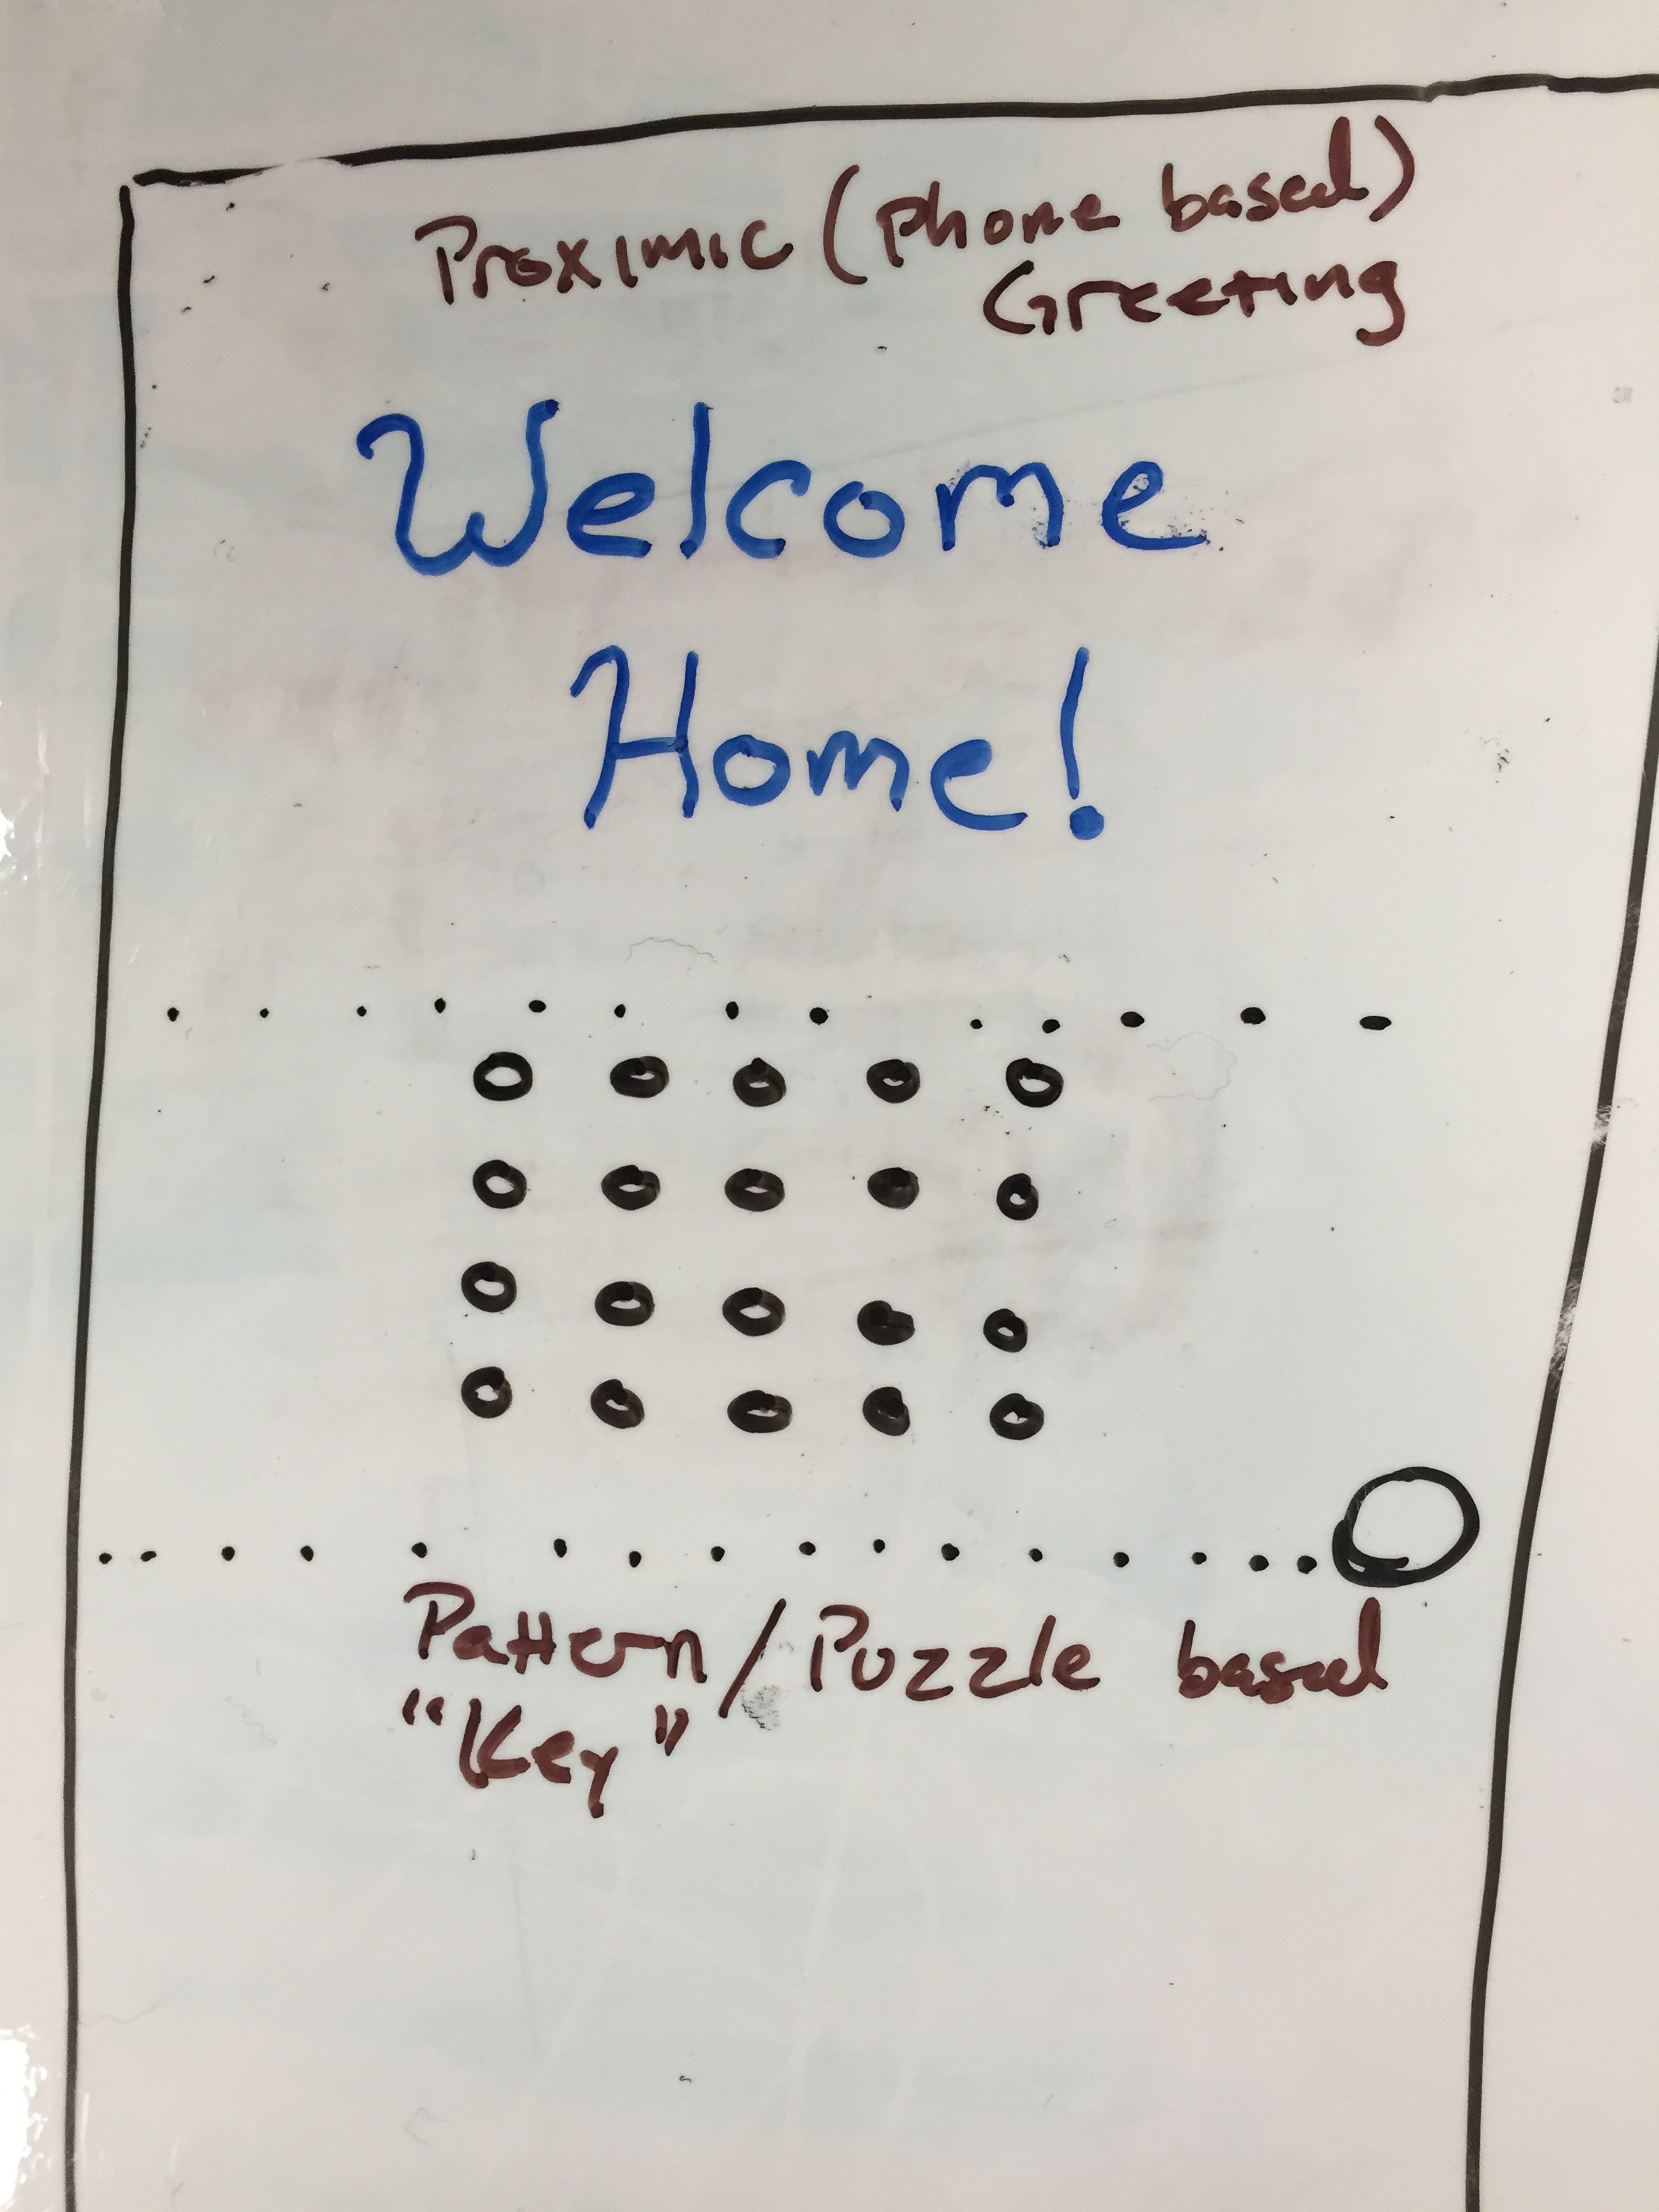 Proximic (phone based)
Greeting
Welcome
Home!
Pattern / Puzzle based
"Key"